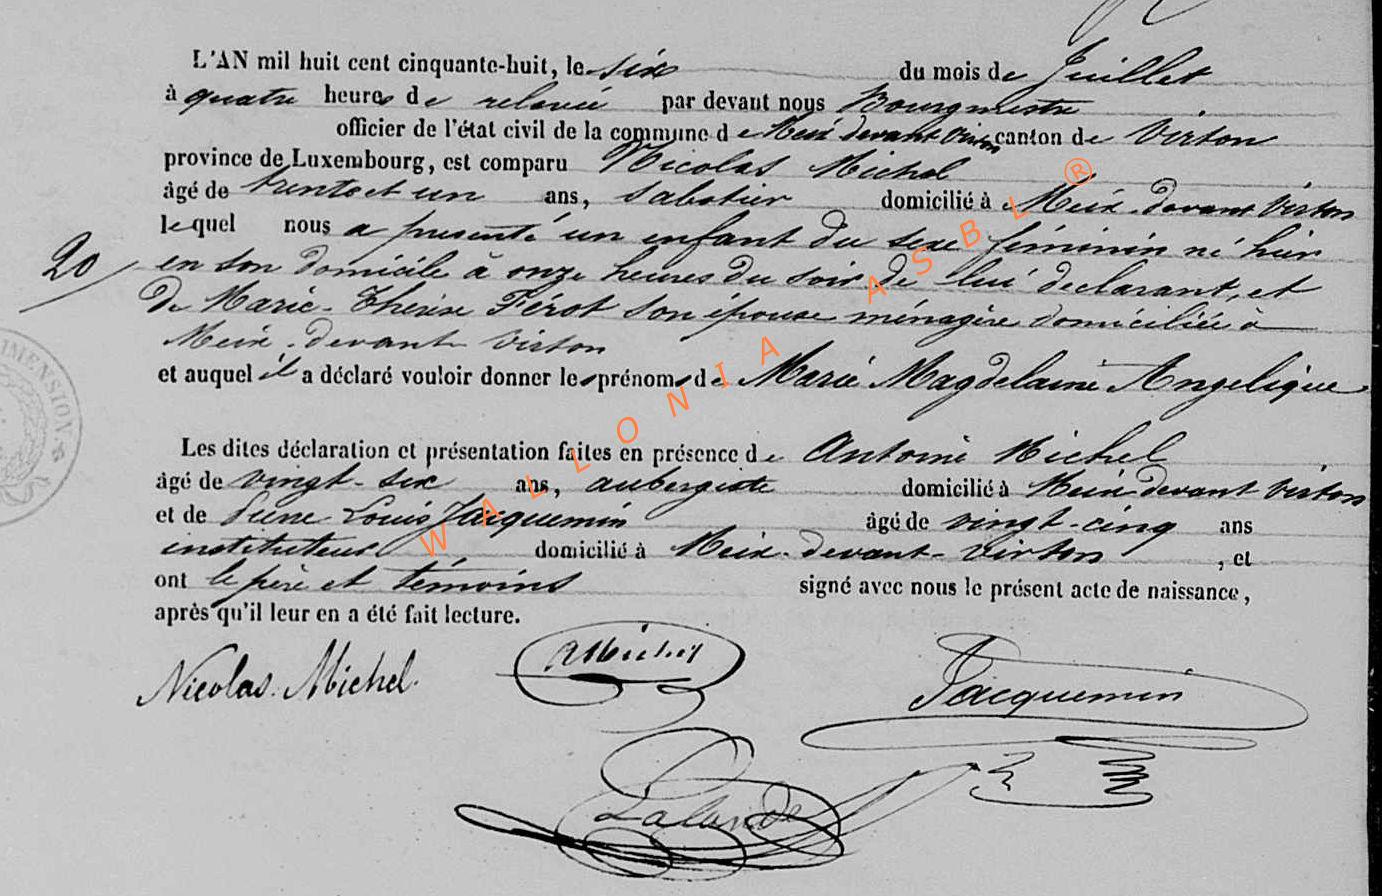 L'AN mil huit cent cinquante-huit, le six du mois de Juillet
à quatre heures de relevée par devant nous Bourgmestre
officier de l'état civil de la commune de Meix devant Virton canton de Virton
province de Luxembourg, est comparu Nicolas Michel
âgé de trente et un ans, sabotier domicilié à Meix-devant Virton
lequel nous a présenté un enfant du sexe féminin né hier
20
en son domicile à onze heures du soir de lui déclarant, et
de Marie-Thérèse Pérot son épouse ménagère domiciliée à
Meix-devant Virton
et auquel il a déclaré vouloir donner les prénoms de Marie Magdelaine Angelique
Les dites déclaration et présentation faites en présence de Antoine Michel
âgé de vingt-six ans, aubergiste domicilié à Meix devant Virton
et de Louis Jacquemin âgé de vingt-cinq ans
instituteur domicilié à Meix-devant-Virton, et
ont le père et témoins signé avec nous le présent acte de naissance,
après qu'il leur en a été fait lecture.
Nicolas Michel. AMichel Jacquemin
IMENSION
WALLONIA ASBL ®